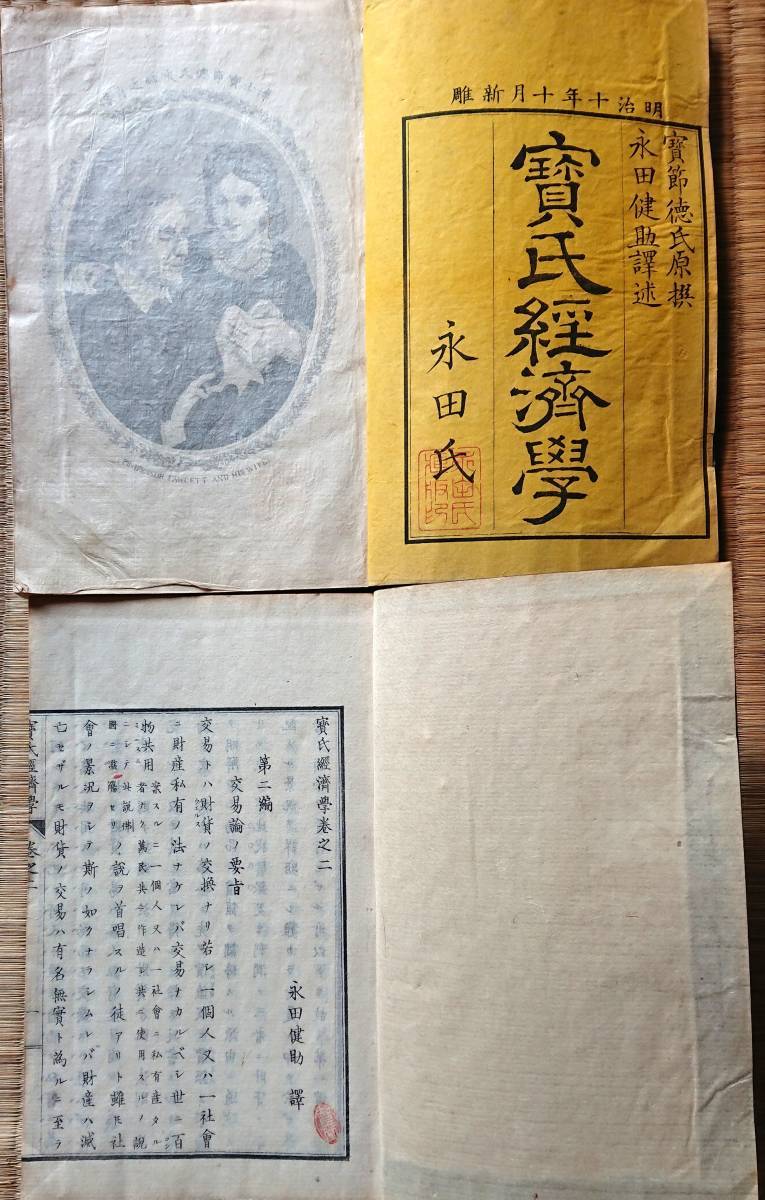 明治十年十月新雕
寳節德氏原撰
永田健助譯述
寳氏經濟學
永田氏
PROFESSOR FAWCETT AND HIS WIFE
寳氏經濟學卷之二
永田健助 譯
第二編
交易論ノ要旨
交易トハ財貨ノ交換ナリ若シ一個人又ハ一社會
ニ財産私有ノ法ナケレバ交易ナカルベシ世ニ百
物共用
案スルニ一個人又ハ一社會ニ私有産タル
者ナク萬民共ニ作造シ共ニ使用スルノ說
ニシテ此說佛
國ニ
ノ說ヲ首唱スルノ徒アリト雖𪜈社
會ノ景況ヲシテ斯ノ如クナラシムレバ財産ハ滅
亡セザルモ財貨ノ交易ハ有名無實ト為ルニ至ラ
寳氏經濟學 卷之二